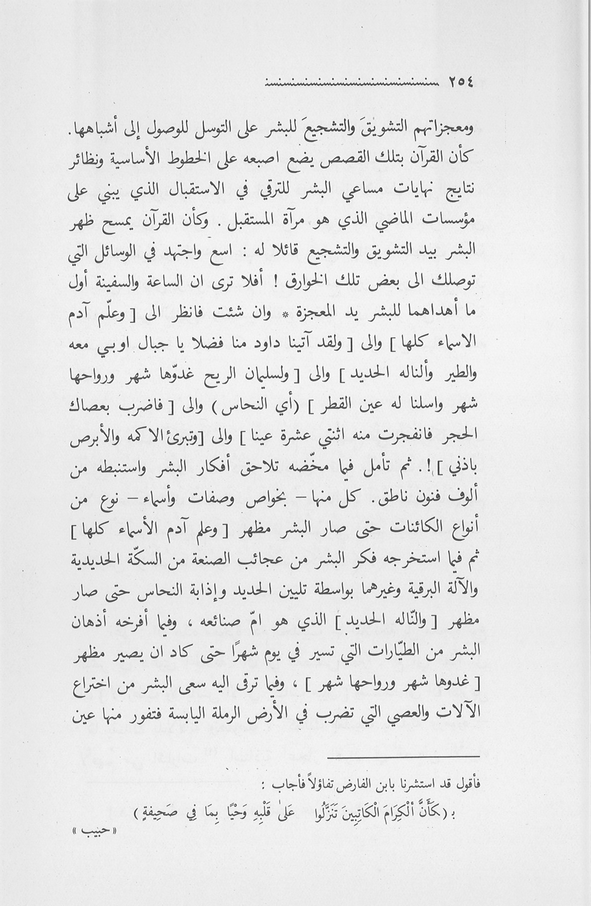 ٢٥٤
ومعجزاتهم التشويقَ والتشجيعَ للبشر على التوسل للوصول إلى أشباهها.
كأن القرآن بتلك القصص يضع اصبعه على الخطوط الأساسية ونظائر
نتايج نهايات مساعي البشر للترقي في الاستقبال الذي يبني على
مؤسسات الماضي الذي هو مرآة المستقبل . وكأن القرآن يمسح ظهر
البشر بيد التشويق والتشجيع قائلا له : اسع واجتهد في الوسائل التي
توصلك الى بعض تلك الخوارق ! أفلا ترى ان الساعة والسفينة أول
ما أهداهما للبشر يد المعجزة * وان شئت فانظر الى [ وعلّم آدم
الاسماء كلها ] والى [ ولقد آتينا داود منا فضلا يا جبال اوبي معه
والطير وألناله الحديد ] والى [ ولسليمان الريح غدوّها شهر ورواحها
شهر واسلنا له عين القطر ] (أي النحاس) والى [ فاضرب بعصاك
الحجر فانفجرت منه اثنتي عشرة عينا ] والى [وتبرئ الاكمه والأبرص
باذني ] !. ثم تأمل فيما مخّضه تلاحق أفكار البشر واستنبطه من
ألوف فنون ناطق. كل منها – بخواص وصفات وأسماء – نوع من
أنواع الكائنات حتى صار البشر مظهر [ وعلم آدم الأسماء كلها ]
ثم فيما استخرجه فكر البشر من عجائب الصنعة من السكّة الحديدية
والآلة البرقية وغيرهما بواسطة تليين الحديد وإذابة النحاس حتى صار
مظهر [ والنّاله الحديد ] الذي هو امّ صنائعه ، وفيما أفرخه أذهان
البشر من الطيّارات التي تسير في يوم شهرًا حتى كاد ان يصير مظهر
[ غدوها شهر ورواحها شهر ] ، وفيما ترقى اليه سعى البشر من اختراع
الآلات والعصي التي تضرب في الأرض الرملة اليابسة فتفور منها عين
فأقول قد استشرنا بابن الفارض تفاؤلاً فأجاب :
بـ (كَأَنَّ الْكِرَامَ الْكَاتِبِينَ تَنَزَّلُوا عَلَىٰ قَلْبِهِ وَحْيًا بِمَا فِي صَحِيفَةٍ)
« حبيب »